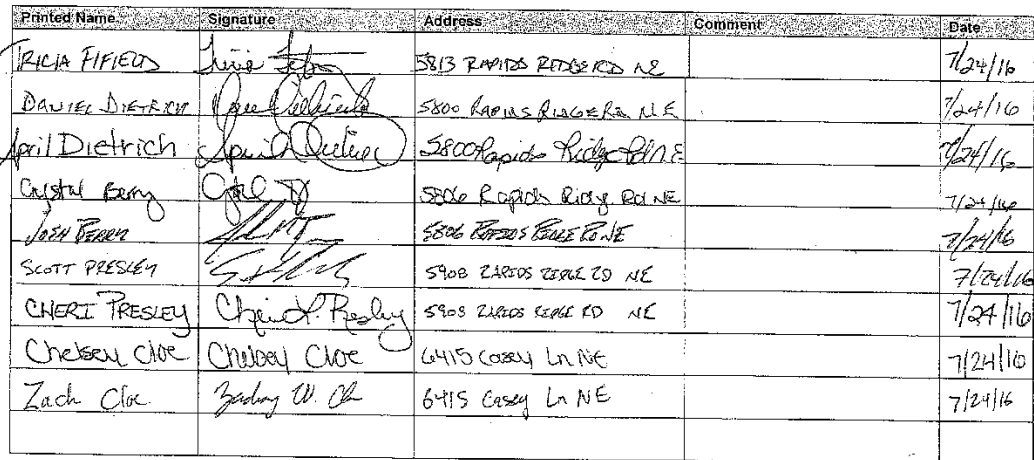 Printed Name Signature Address Comment Date
TRICIA FIFIELD 5813 RAPIDS RIDGE RD NE 7/24/16
DANIEL DIETRICH 5800 RAPIDS RIDGE RD NE 7/24/16
April Dietrich April Dietrich 5800 Rapids Ridge Rd NE 7/24/16
Crystal Berry 5806 Rapids Ridge Rd NE 7/24/16
JOSH BERRY 5806 RAPIDS RIDGE RD NE 7/24/16
SCOTT PRESLEY 5908 RAPIDS RIDGE RD NE 7/24/16
CHERI PRESLEY Cheri L. Presley 5908 RAPIDS RIDGE RD NE 7/24/16
Chelsey Cloe Chelsey Cloe 6415 Casey Ln NE 7/24/16
Zach Cloe 6415 Casey Ln NE 7/24/16